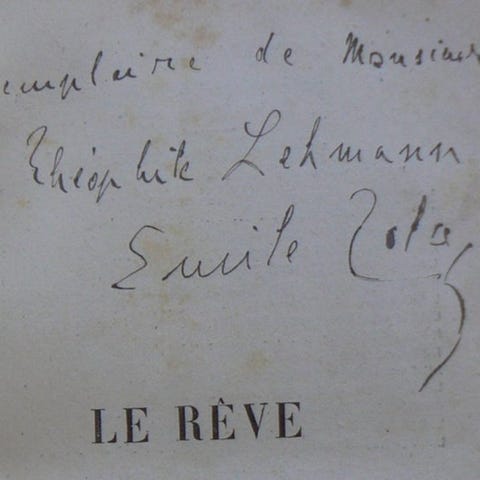 emplaire de Monsieur
Théophile Lehmann
Emile Zola
LE RÊVE